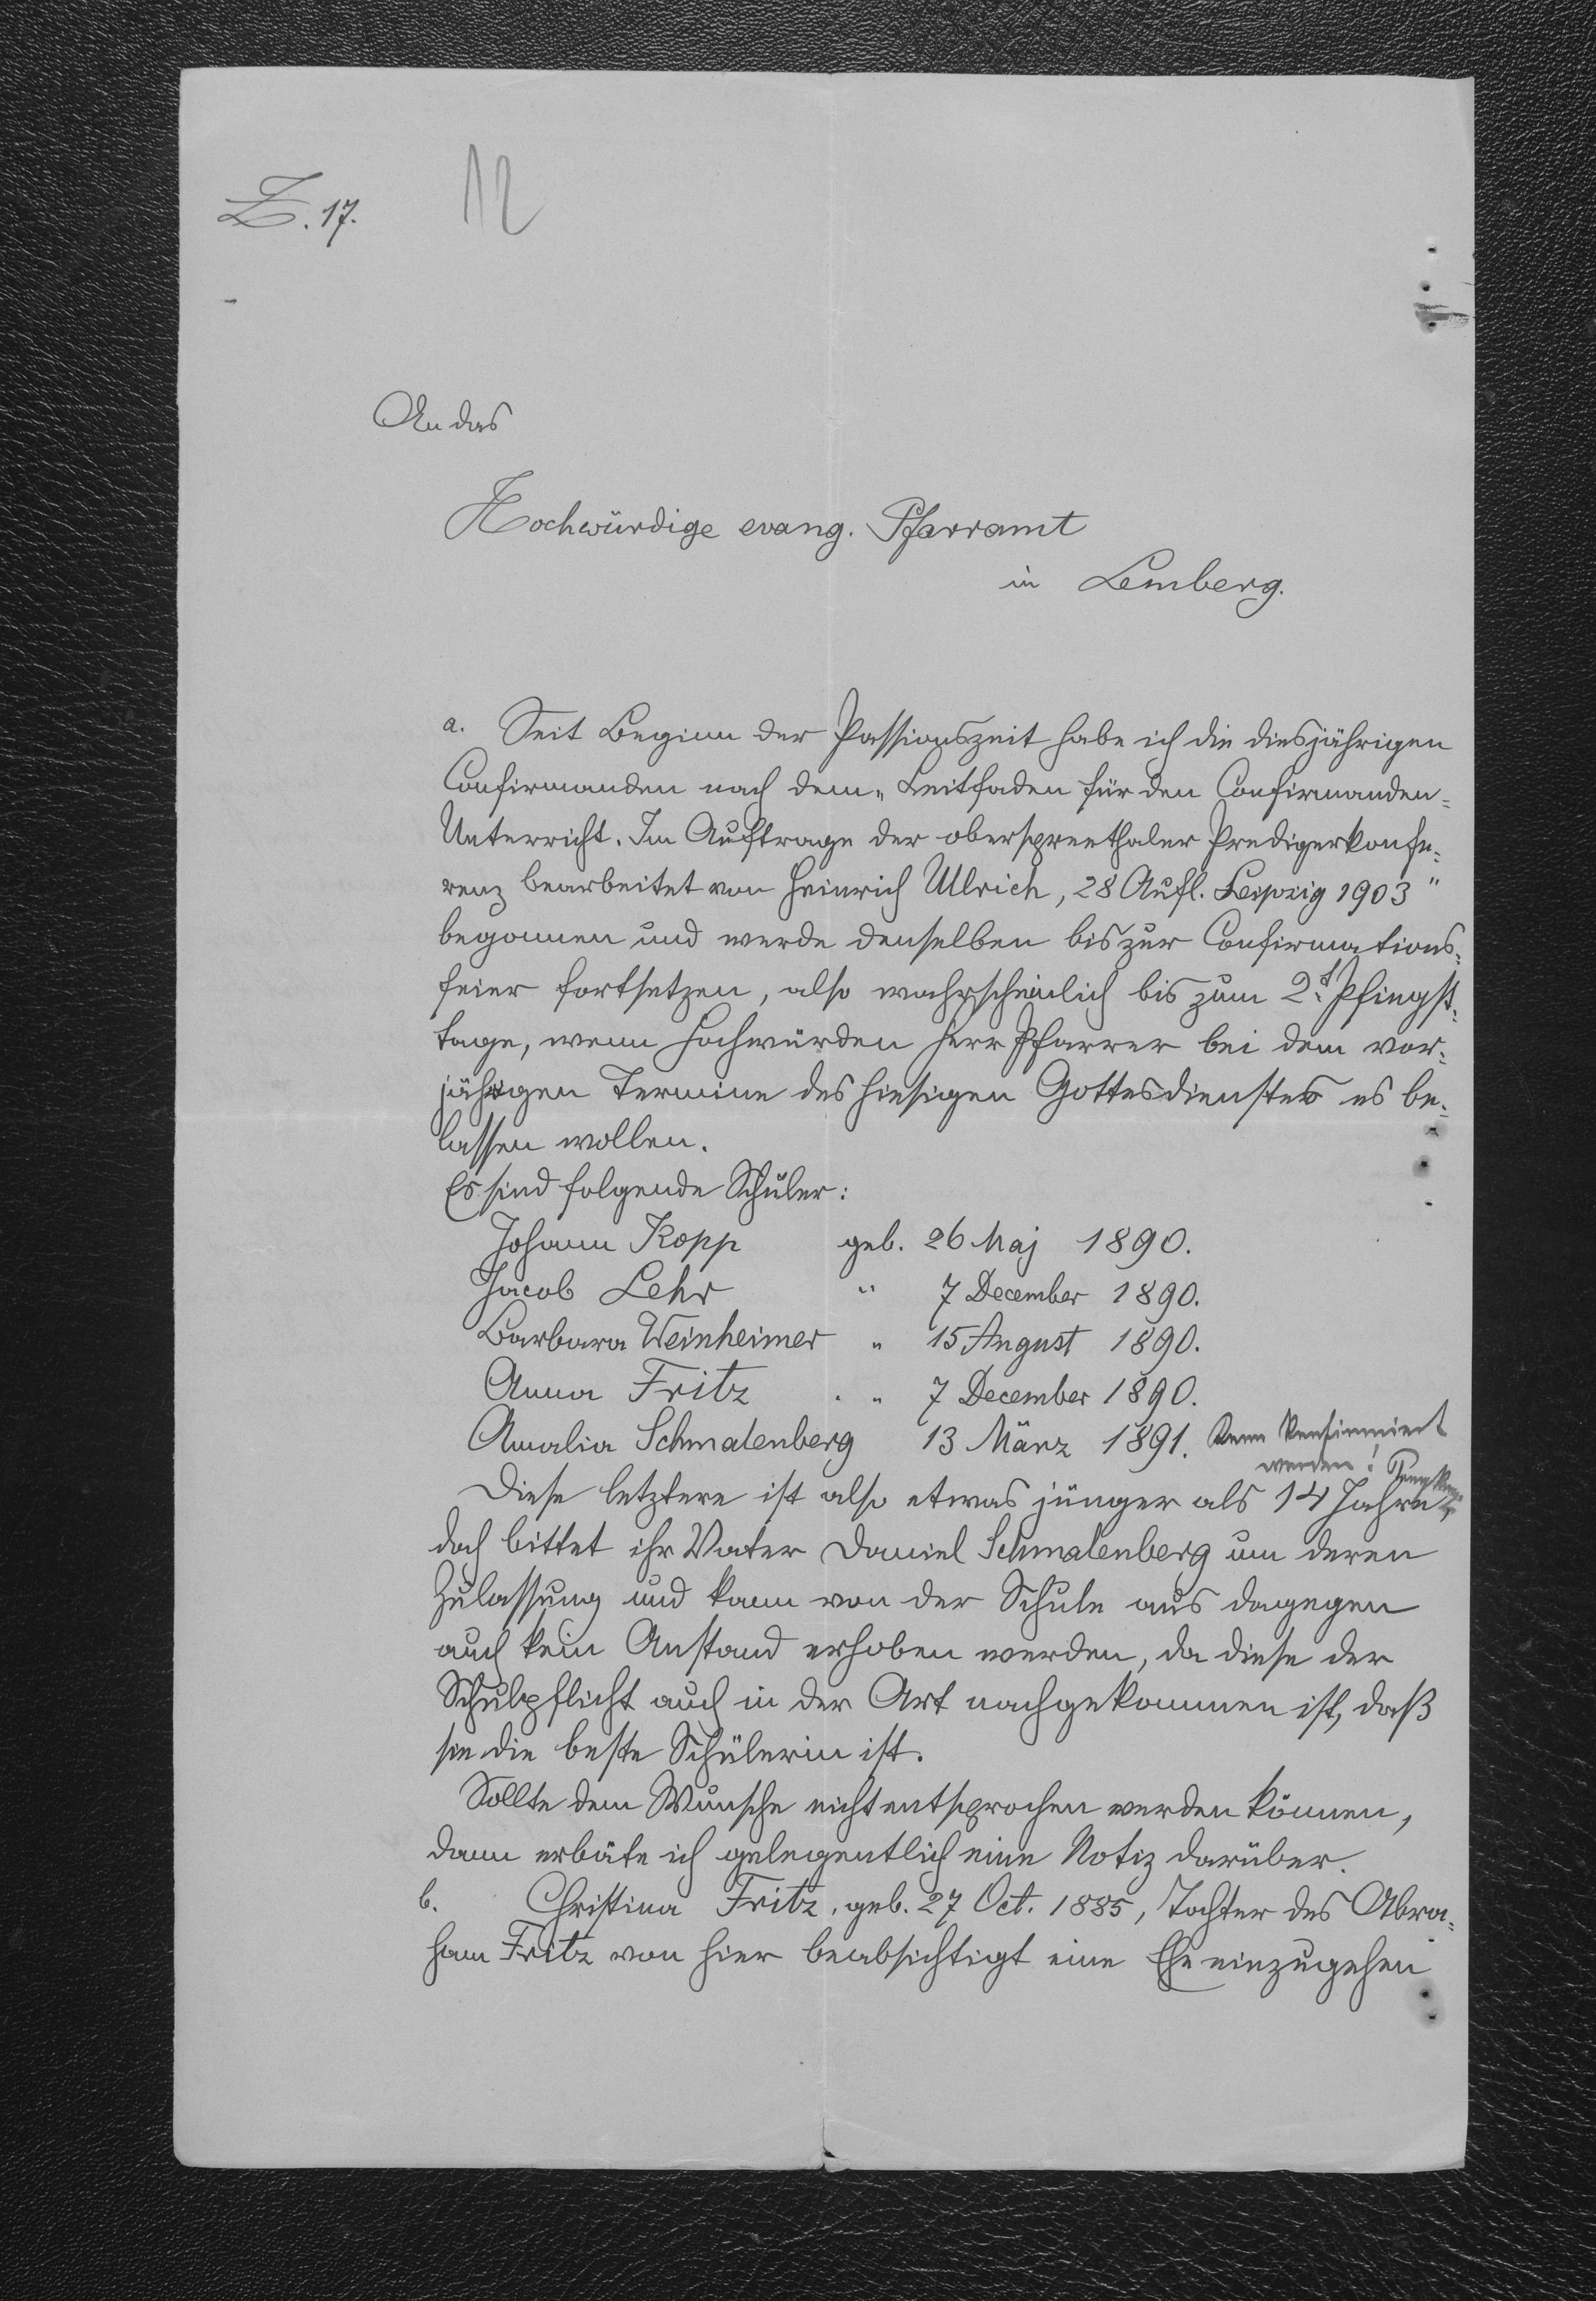 Z. 17.
12
An das
Hochwürdige evang. Pfarramt
in Lemberg.
a. Seit Beginn der Passionszeit habe ich die diesjährigen
Confirmanden nach dem „Leitfaden für den Confirmanden=
Unterricht. Im Auftrage der oberspreethaler Predigerkonfe=
renz bearbeitet von Heinrich Ullrich, 28 Aufl. Leipzig 1903"
begonnen und werde denselben bis zur Confirmations=
feier fortsetzen, also wahrscheinlich bis zum 2t Pfingst=
tage, wenn Hochwürden Herr Pfarrer bei dem vor=
jährigen Termine des hiesigen Gottesdienstes es be=
lassen wollen.
Es sind folgende Schüler:
Johann Kopp geb. 26 Maj 1890.
Jacob Lehr " 7 December 1890.
Barbara Weinheimer " 15 August 1890.
Anna Fritz " 7 December 1890.
Amalia Schmalenberg 13 März 1891. Kann konfirmiert
werden!
Diese letztere ist also etwas jünger als 14 Jahre,
doch bittet ihr Vater Daniel Schmalenberg um deren
Zulassung und kann von der Schule aus dagegen
auch kein Anstand erhoben werden, da diese der
Schulpflicht auch in der Art nachgekommen ist, daß
sie die beste Schülerin ist.
Sollte dem Wunsche nicht entsprochen werden können,
dann erbäte ich gelegentlich eine Notiz darüber.
b. Christina Fritz, geb. 27 Oct. 1885, Tochter des Abra=
ham Fritz von hier beabsichtigt eine Ehe einzugehen